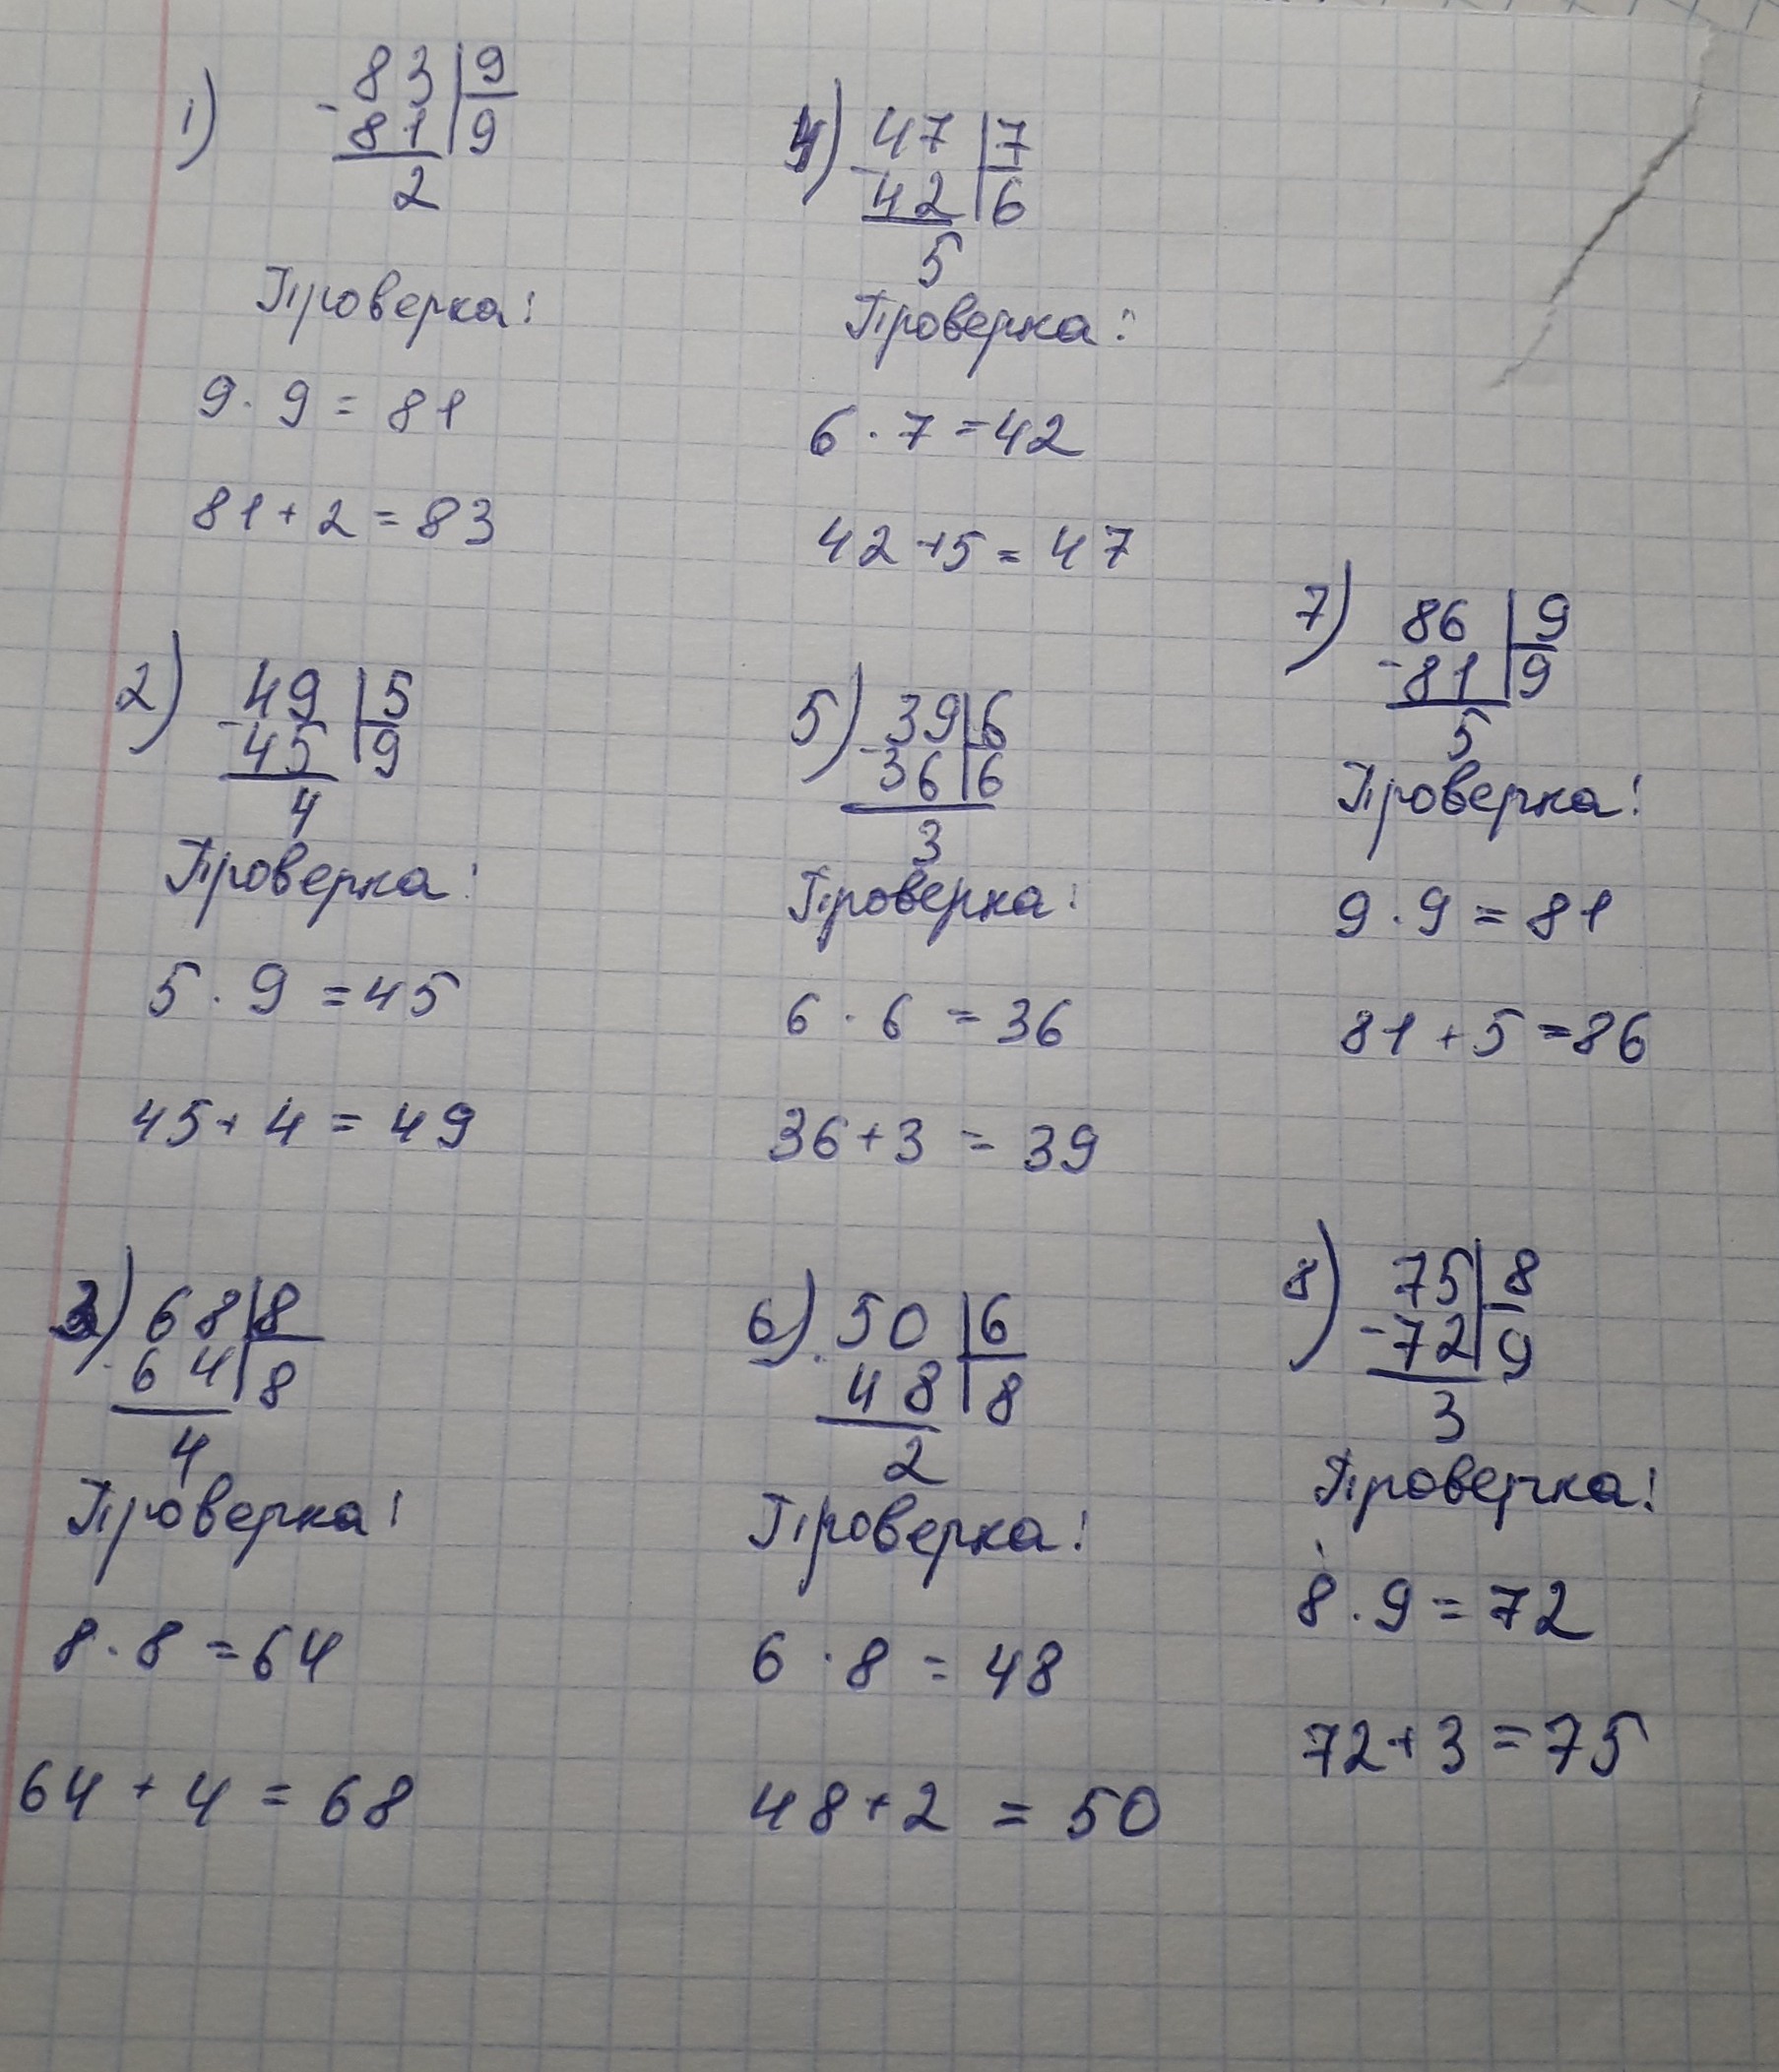 1) 83 | 9
- 81 | 9
2
Проверка:
9 · 9 = 81
81 + 2 = 83
2) 49 | 5
- 45 | 9
4
Проверка:
5 · 9 = 45
45 + 4 = 49
3) 68 | 8
- 64 | 8
4
Проверка:
8 · 8 = 64
64 + 4 = 68
4) 47 | 7
- 42 | 6
5
Проверка:
6 · 7 = 42
42 + 5 = 47
5) 39 | 6
- 36 | 6
3
Проверка:
6 · 6 = 36
36 + 3 = 39
6) 50 | 6
- 48 | 8
2
Проверка:
6 · 8 = 48
48 + 2 = 50
7) 86 | 9
- 81 | 9
5
Проверка:
9 · 9 = 81
81 + 5 = 86
8) 75 | 8
- 72 | 9
3
Проверка:
8 · 9 = 72
72 + 3 = 75